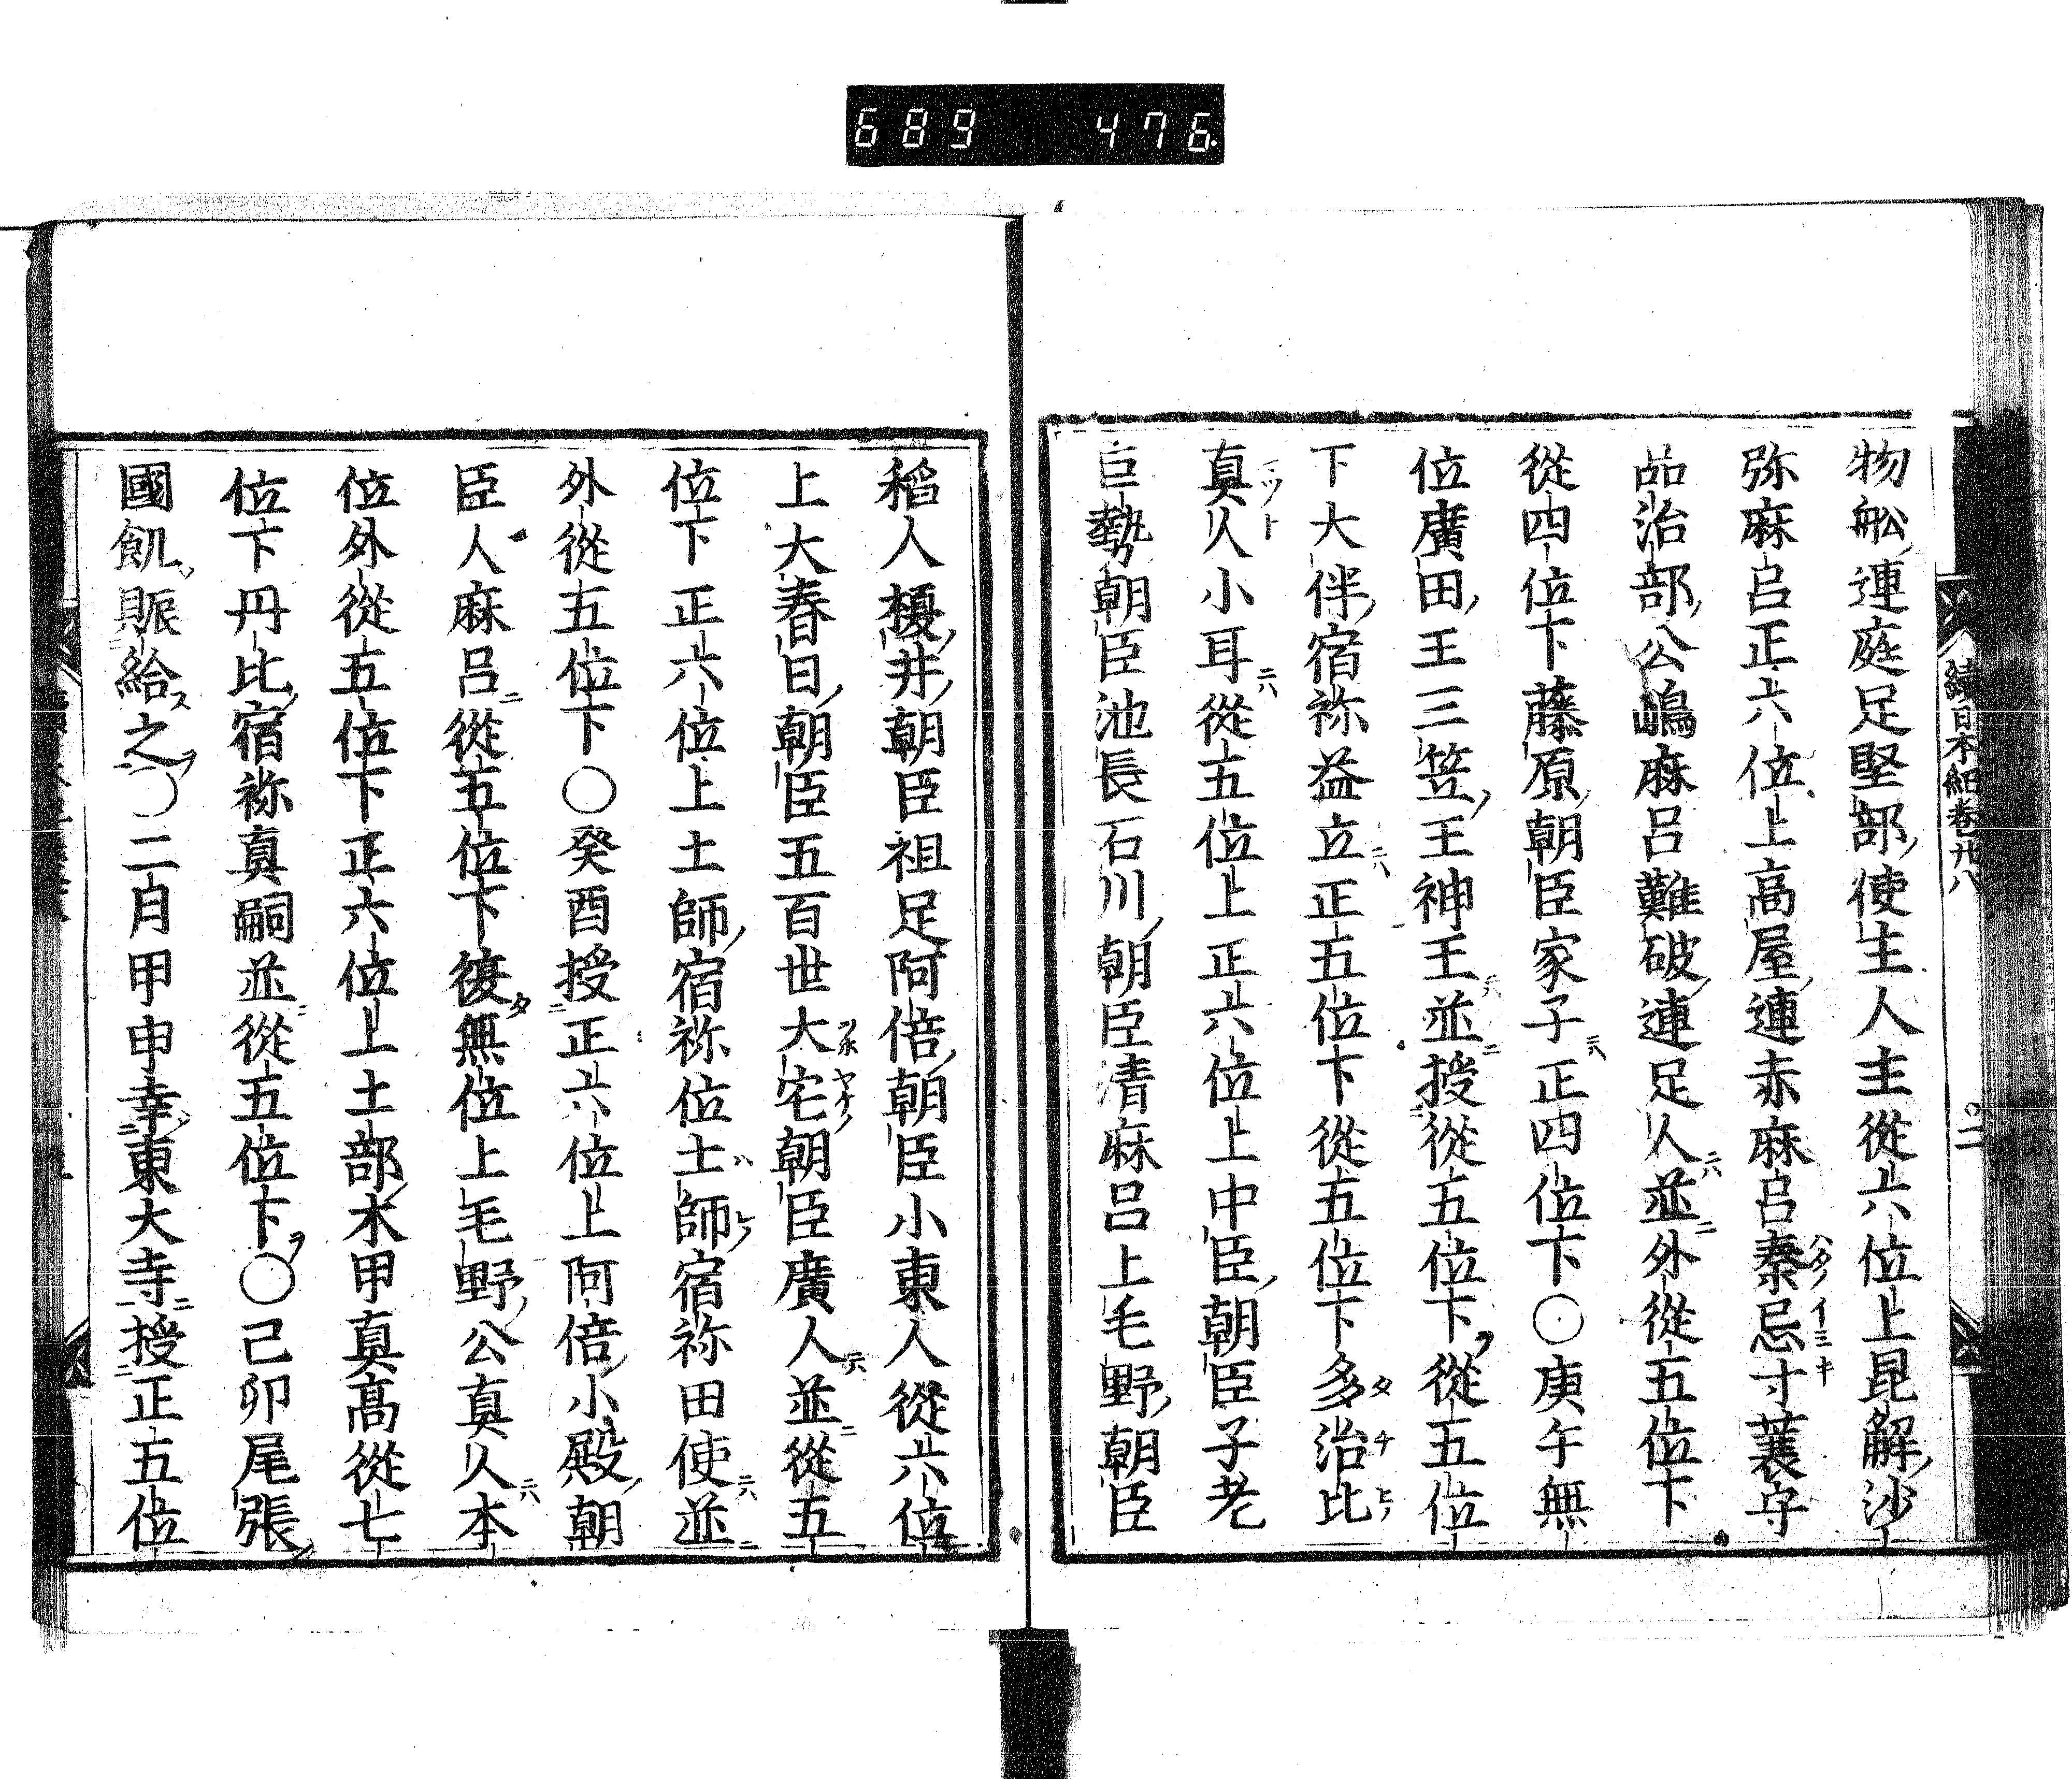 689 476
續日本紀卷廿八
○二
物舩連庭足堅部使主人主從六位上昆解沙
弥麻呂正六位上高屋連赤麻呂秦忌寸蓑守
品治部公嶋麻呂難破連足人並外從五位下
從四位下藤原朝臣家子正四位下○庚午無
位廣田王三笠王神王並授從五位下從五位
下大伴宿祢益立正五位下從五位下多治比
真人小耳從五位上正六位上中臣朝臣子老
巨勢朝臣池長石川朝臣清麻呂上毛野朝臣
稻人榎井朝臣祖足阿倍朝臣小東人從六位
上大春日朝臣五百世大宅朝臣廣人並從五
位下正六位上土師宿祢位士師宿祢田使並
外從五位下○癸酉授正六位上阿倍小殿朝
臣人麻呂從五位下復無位上毛野公真人本
位外從五位下正六位上土部木甲真高從七
位下丹比宿祢真嗣並從五位下○己卯尾張
國飢賑給之○二月甲申幸東大寺授正五位